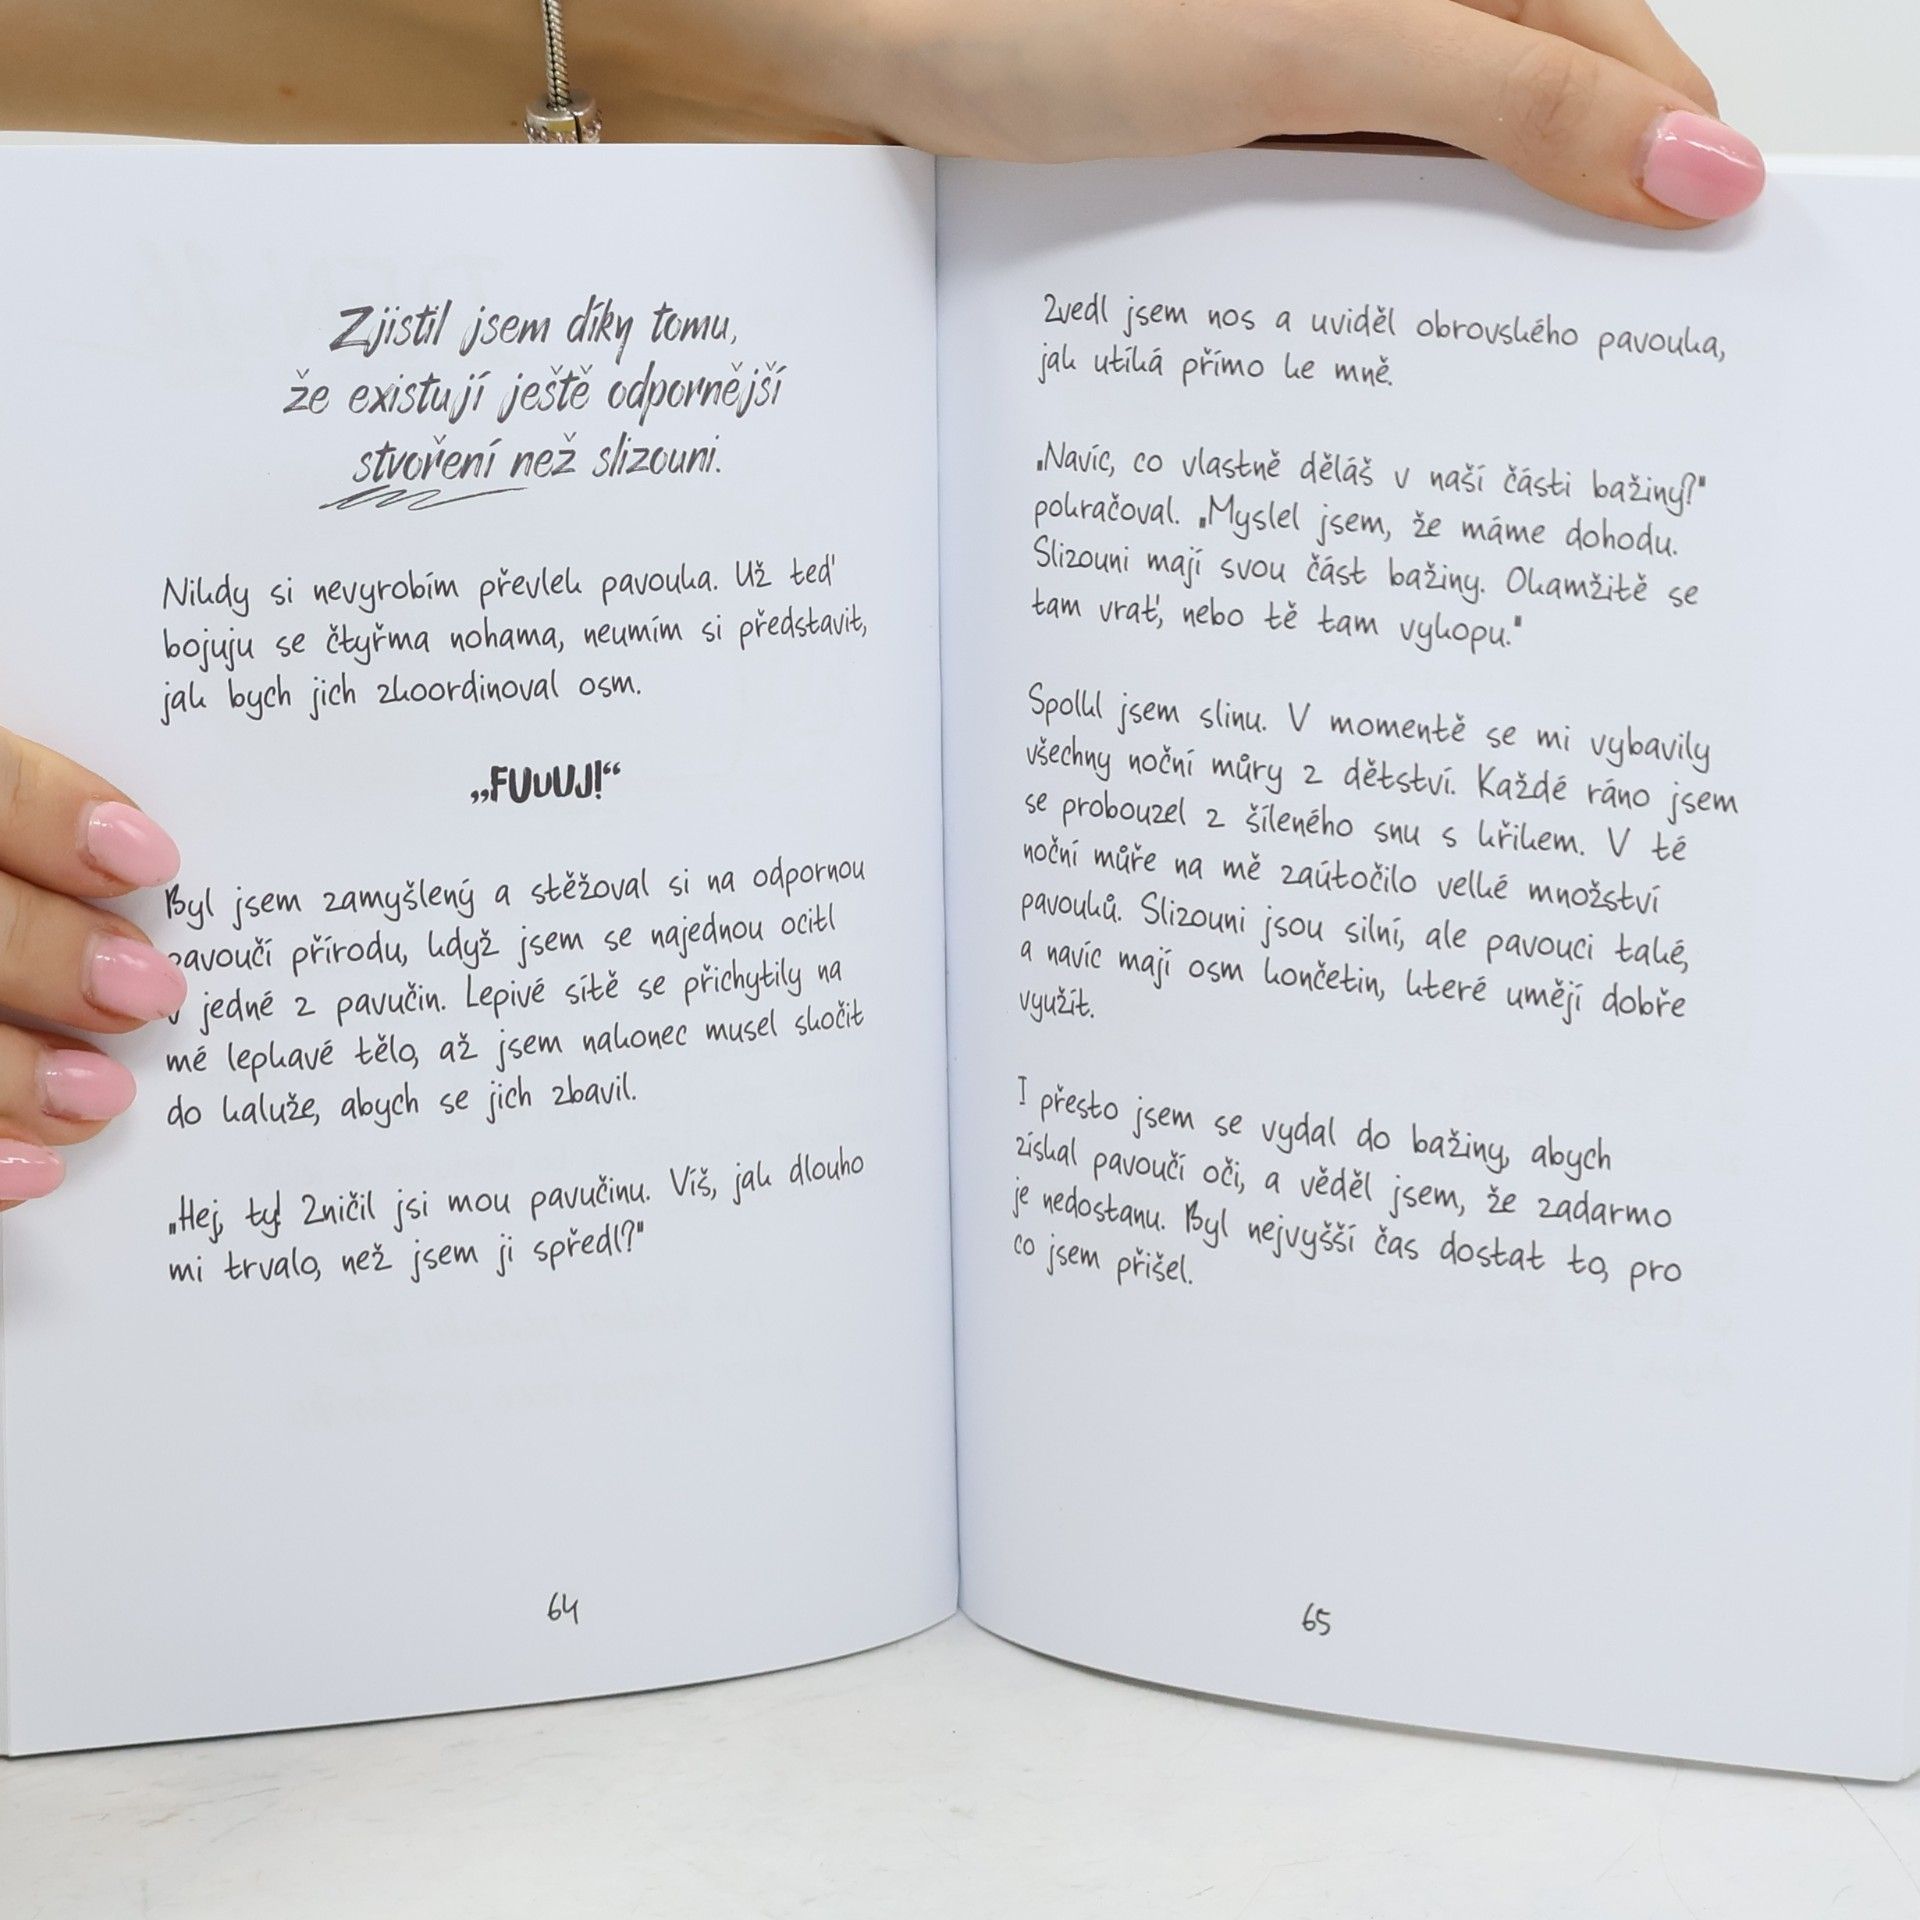 Zjistil jsem díky tomu,
že existují ještě odpornější
stvoření než slizouni.
Nikdy si nevyrobím převlek pavouka. Už teď
bojuju se čtyřma nohama, neumím si představit,
jak bych jich zkoordinoval osm.
„FUuUJ!“
Byl jsem zamyšlený a stěžoval si na odpornou
pavoučí přírodu, když jsem se najednou ocitl
v jedné z pavučin. Lepivé sítě se přichytily na
mé lepkavé tělo, až jsem nakonec musel skočit
do kaluže, abych se jich zbavil.
„Hej, ty! Zničil jsi mou pavučinu. Víš, jak dlouho
mi trvalo, než jsem ji spředl?"
64
Zvedl jsem nos a uviděl obrovského pavouka,
jak utíká přímo ke mně.
„Navíc, co vlastně děláš v naší části bažiny?"
pokračoval. „Myslel jsem, že máme dohodu.
Slizouni mají svou část bažiny. Okamžitě se
tam vrať, nebo tě tam vykopu."
Spolkl jsem slinu. V momentě se mi vybavily
všechny noční můry z dětství. Každé ráno jsem
se probouzel z šíleného snu s křikem. V té
noční můře na mě zaútočilo velké množství
pavouků. Slizouni jsou silní, ale pavouci také,
a navíc mají osm končetin, které umějí dobře
využít.
I přesto jsem se vydal do bažiny, abych
získal pavoučí oči, a věděl jsem, že zadarmo
je nedostanu. Byl nejvyšší čas dostat to, pro
co jsem přišel.
65